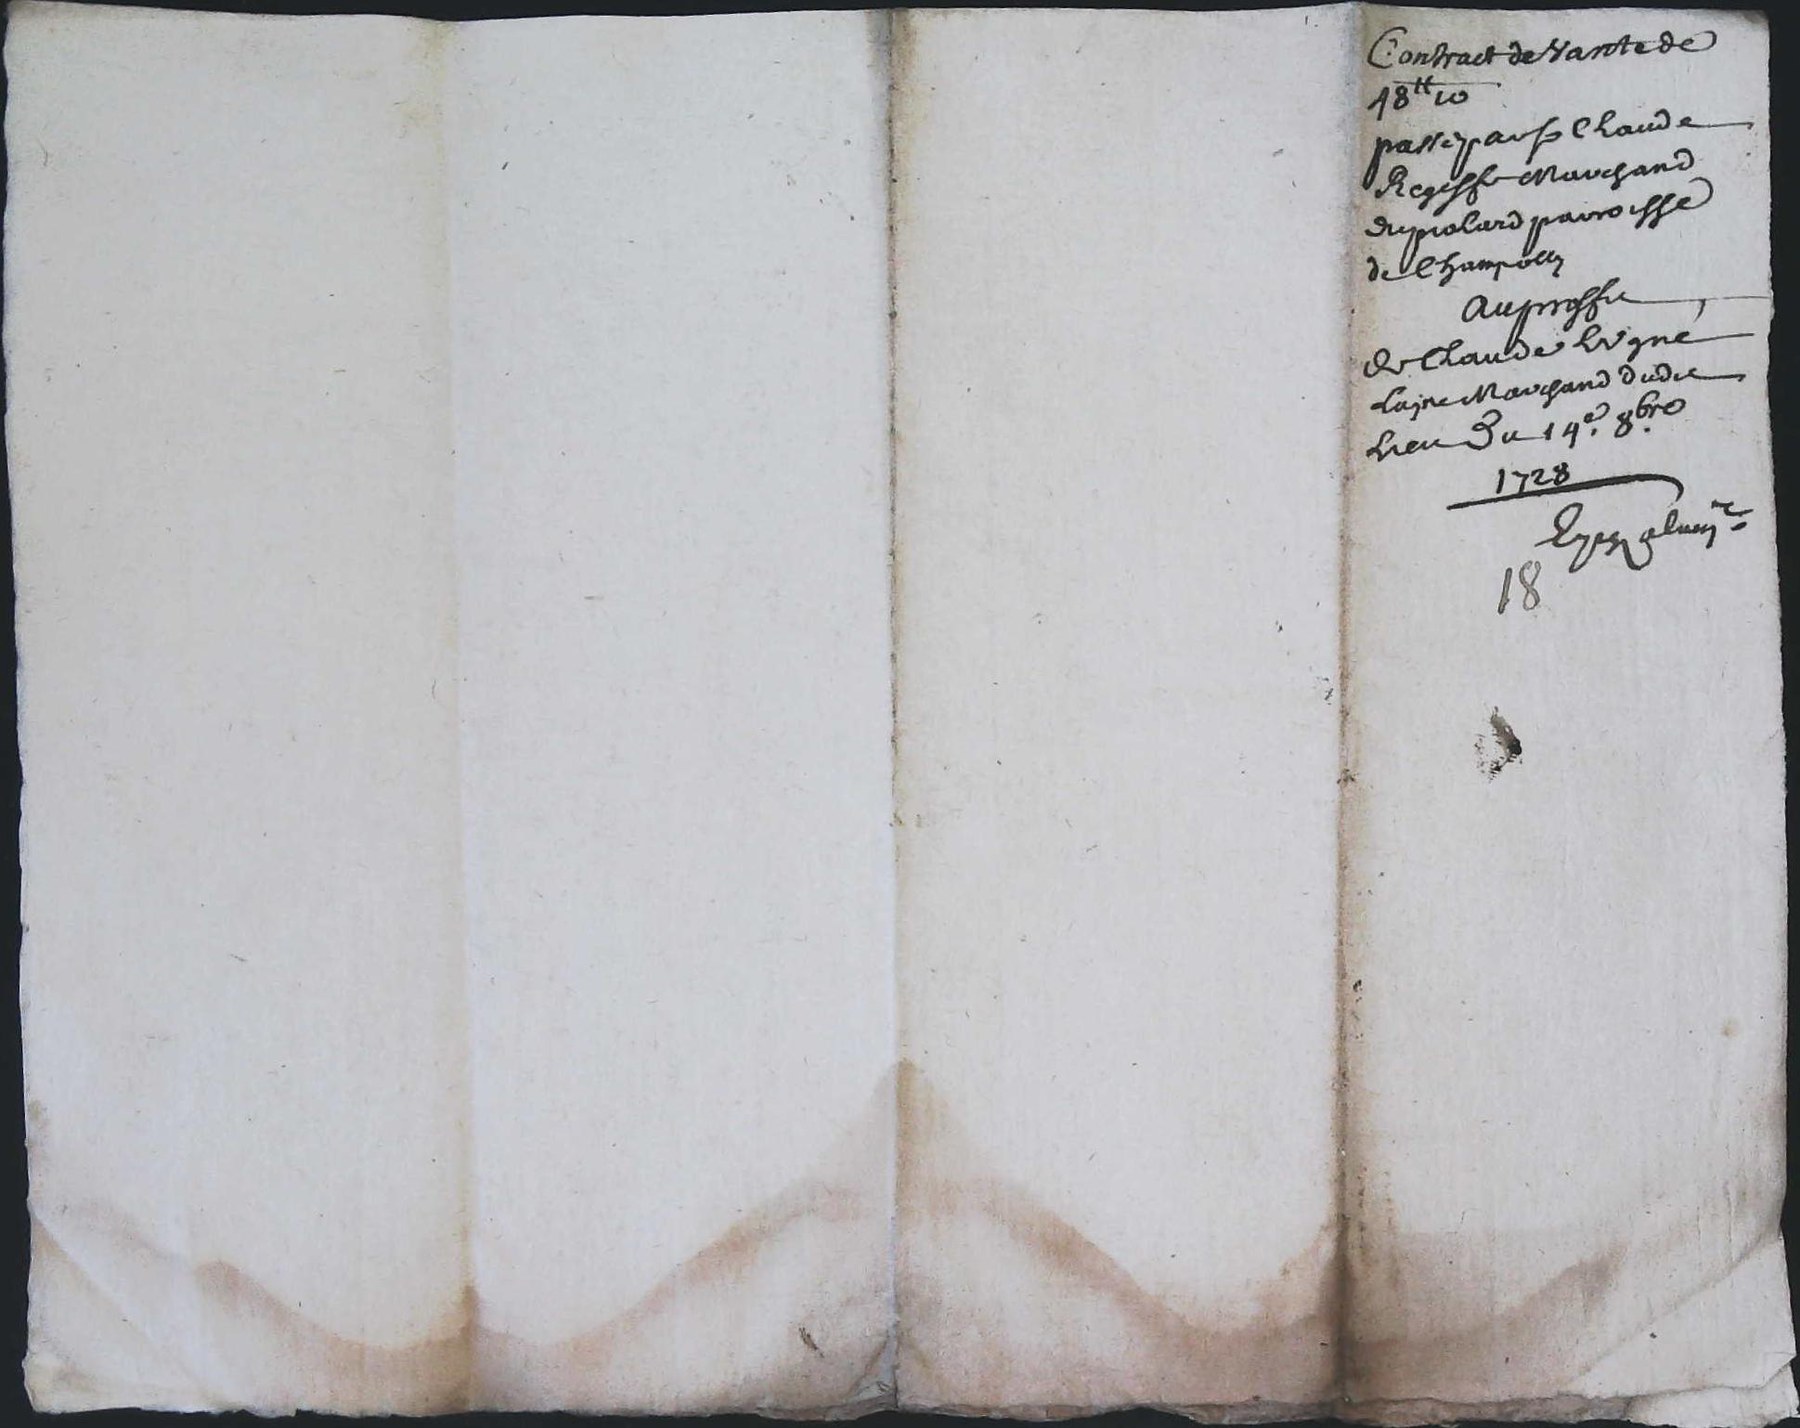 Contract de Vante de
48tt 10
passé par sr Claude
marchand
du piolard parroisse
de Champoly
au proffit
de Claude Vigne
layne marchand dudit
lieu Du 14e. 8.bre
1728
18